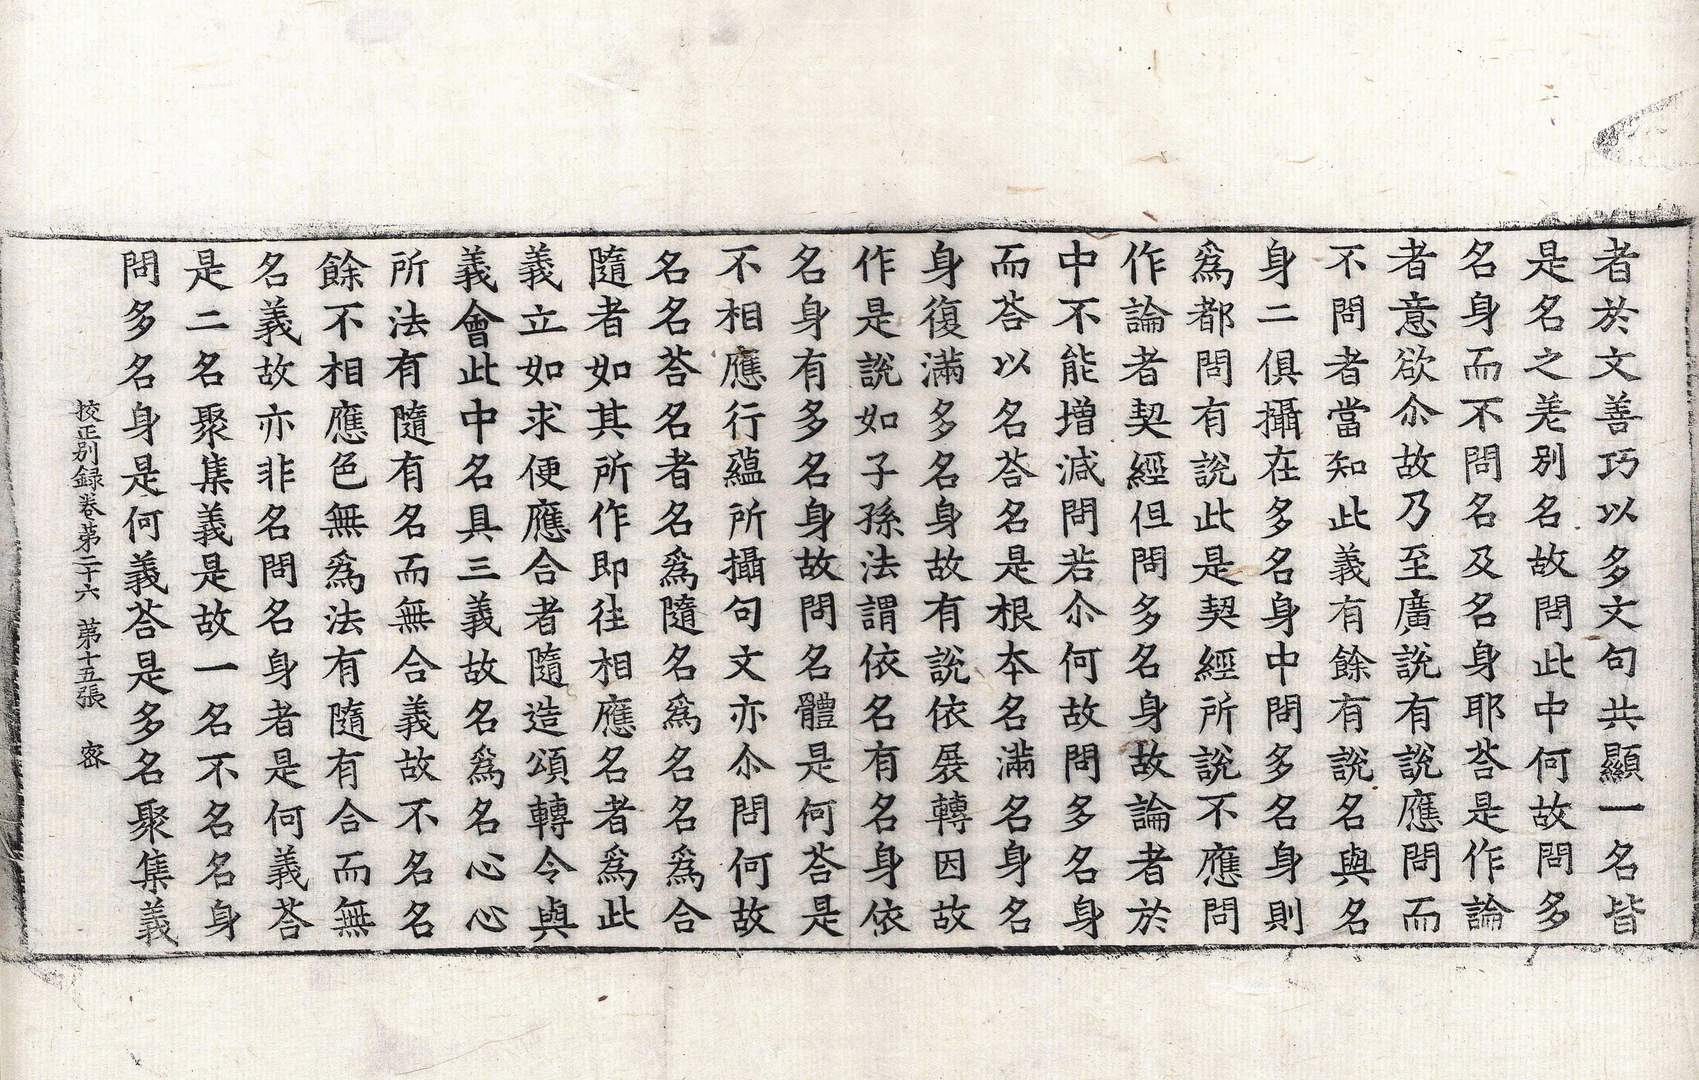 者於文善巧以多文句共顯一名皆
是名之差別名故問此中何故問多
名身而不問名及名身耶荅是作論
者意欲尒故乃至廣說有說應問而
不問者當知此義有餘有說名與名
身二俱攝在多名身中問多名身則
爲都問有說此是契經所說不應問
作論者契經但問多名身故論者於
中不能增減問若尒何故問多名身
而荅以名荅名是根本名滿名身名
身復滿多名身故有說依展轉因故
作是說如子孫法謂依名有名身依
名身有多名身故問名體是何荅是
不相應行蘊所攝句文亦尒問何故
名名荅名者名爲隨名爲名名爲合
隨者如其所作即往相應名者爲此
義立如求便應合者隨造頌轉令與
義會此中名具三義故名爲名心心
所法有隨有名而無合義故不名名
餘不相應色無爲法有隨有合而無
名義故亦非名問名身者是何義荅
是二名聚集義是故一名不名名身
問多名身是何義荅是多名聚集義
挍正別録卷第二十六 第十五張 密